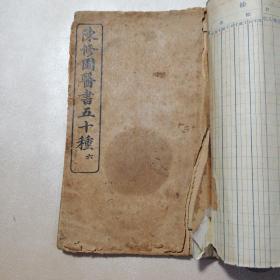 陳修園醫書五十種
六